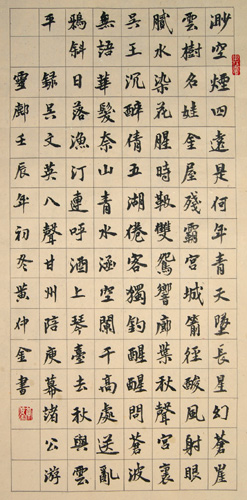 渺空煙四遠是何年青天墜長星幻蒼崖
雲樹名娃金屋殘霸宮城箭徑酸風射眼
膩水染花腥時靸雙鴛響廊葉秋聲宮裏
吳王沉醉倩五湖倦客獨釣醒醒問蒼波
無語華髮奈山青水涵空闌干高處送亂
鴉斜日落漁汀連呼酒上琴臺去秋與雲
平 錄吳文英八聲甘州陪庾幕諸公游
壬辰年初冬黃仲金書